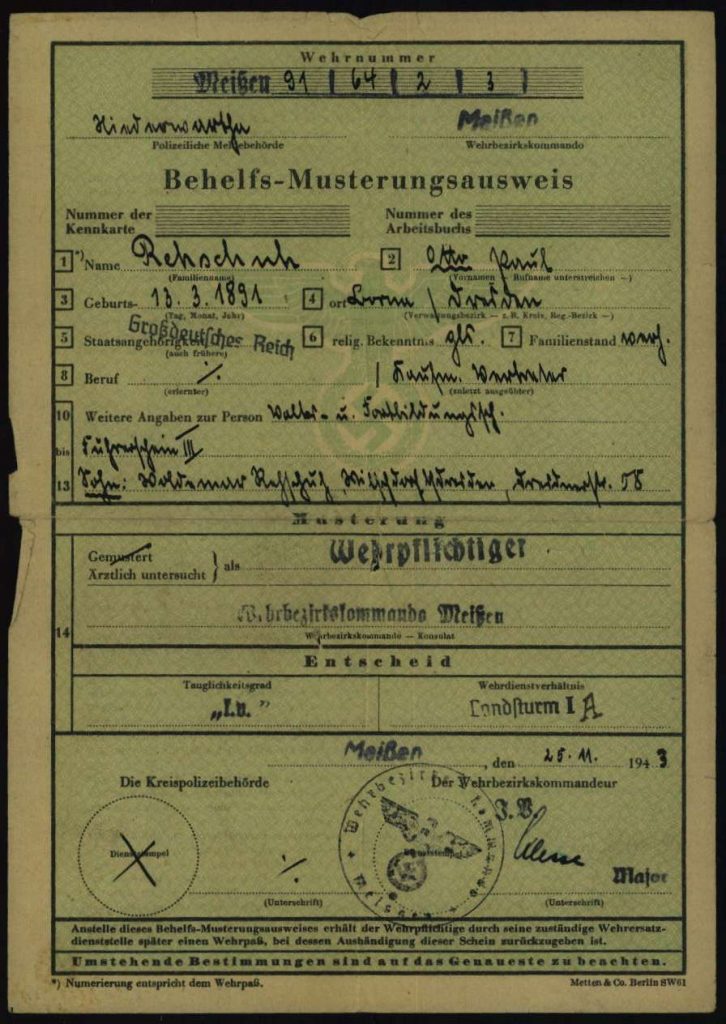 Wehrnummer
Meißen 91 | 64 | 2 | 3 |
Niederwartha Meißen
Polizeiliche Meldebehörde Wehrbezirkskommando
Behelfs-Musterungsausweis
Nummer der Kennkarte Nummer des Arbeitsbuchs
1 *) Name Rehschuh 2 Otto Paul
(Familienname) (Vornamen — Rufname unterstreichen —)
3 Geburts- 13.3.1891 4 ort / Dresden
(Tag, Monat, Jahr) (Verwaltungsbezirk — z. B. Kreis, Reg.-Bezirk —)
5 Staatsangehörigkeit Großdeutsches Reich 6 relig. Bekenntnis 7 Familienstand verh.
(auch frühere)
8 Beruf ·/· | Kaufm. Vertreter
(erlernter) (zuletzt ausgeübter)
10 Weitere Angaben zur Person Volks- u. Fortbildungssch.
bis Führerschein III
13 Sohn: Woldemar Rehschuh, Dresdnerstr. 58
Musterung
14 Gemustert
Ärztlich untersucht } als Wehrpflichtiger
Wehrbezirkskommando Meißen
Wehrbezirkskommando — Konsulat
Entscheid
Tauglichkeitsgrad Wehrdienstverhältnis
Landsturm I A
Meißen, den 25.11. 1943
Die Kreispolizeibehörde Der Wehrbezirkskommandeur
J.V.
Wehrbezirkskommando Meissen
Dienststempel ·/· Dienststempel Major
(Unterschrift) (Unterschrift)
Anstelle dieses Behelfs-Musterungsausweises erhält der Wehrpflichtige durch seine zuständige Wehrersatz-
dienststelle später einen Wehrpaß, bei dessen Aushändigung dieser Schein zurückzugeben ist.
Umstehende Bestimmungen sind auf das Genaueste zu beachten.
*) Numerierung entspricht dem Wehrpaß. Metten & Co. Berlin SW61